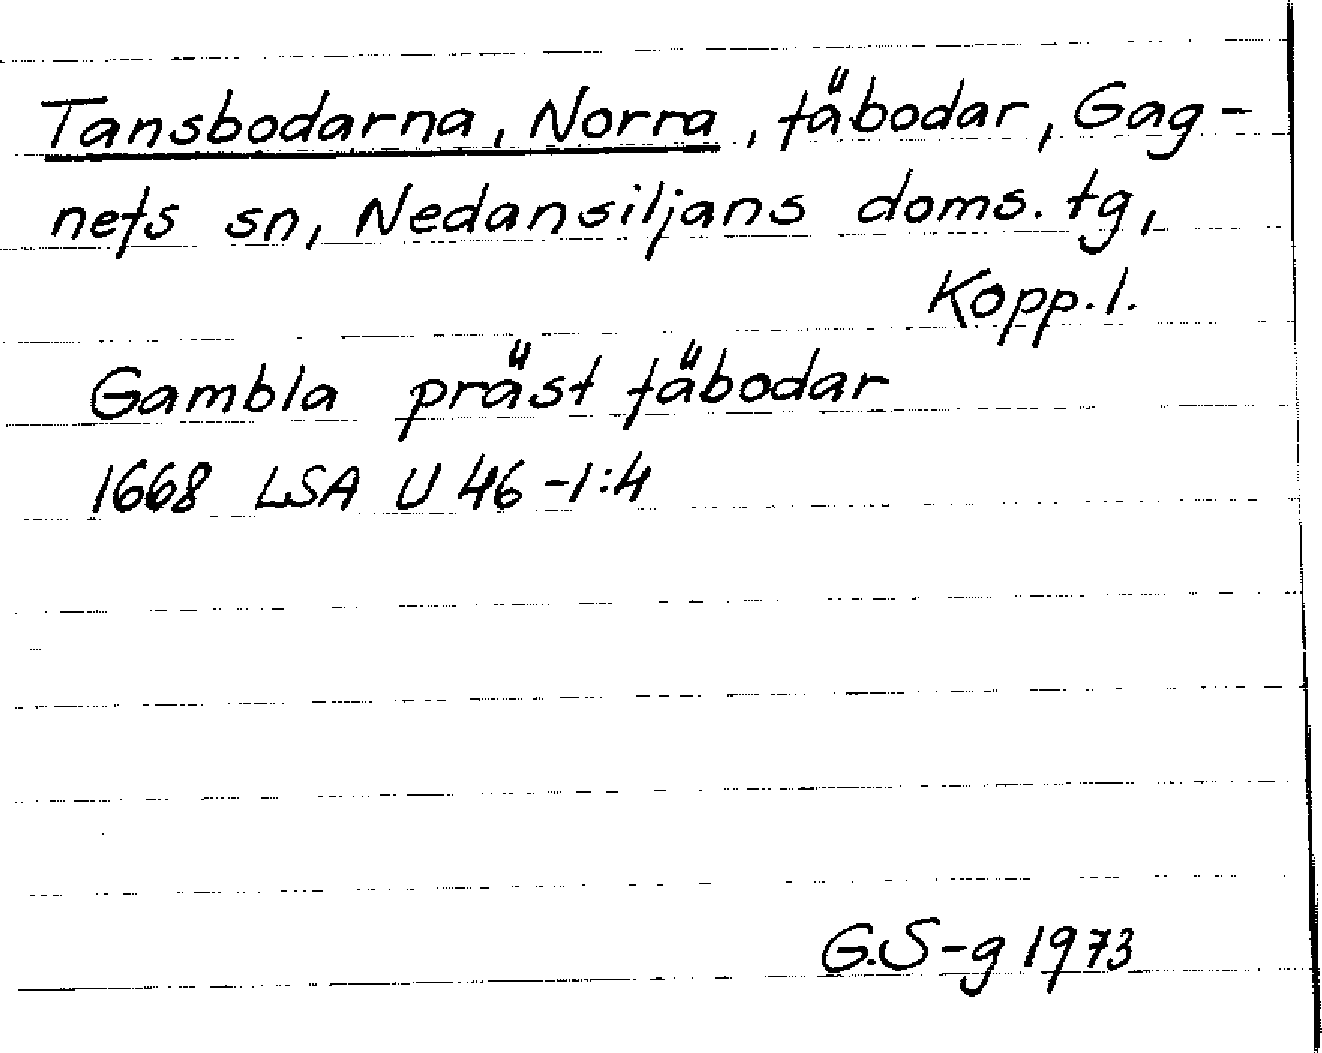 Tansbodarna, Norra, fäbodar, Gag-
nefs sn, Nedansiljans doms. tg,
Kopp. l.
Gambla präst fäbodar
1668 LSA U 46-1:4
G.S-g 1973